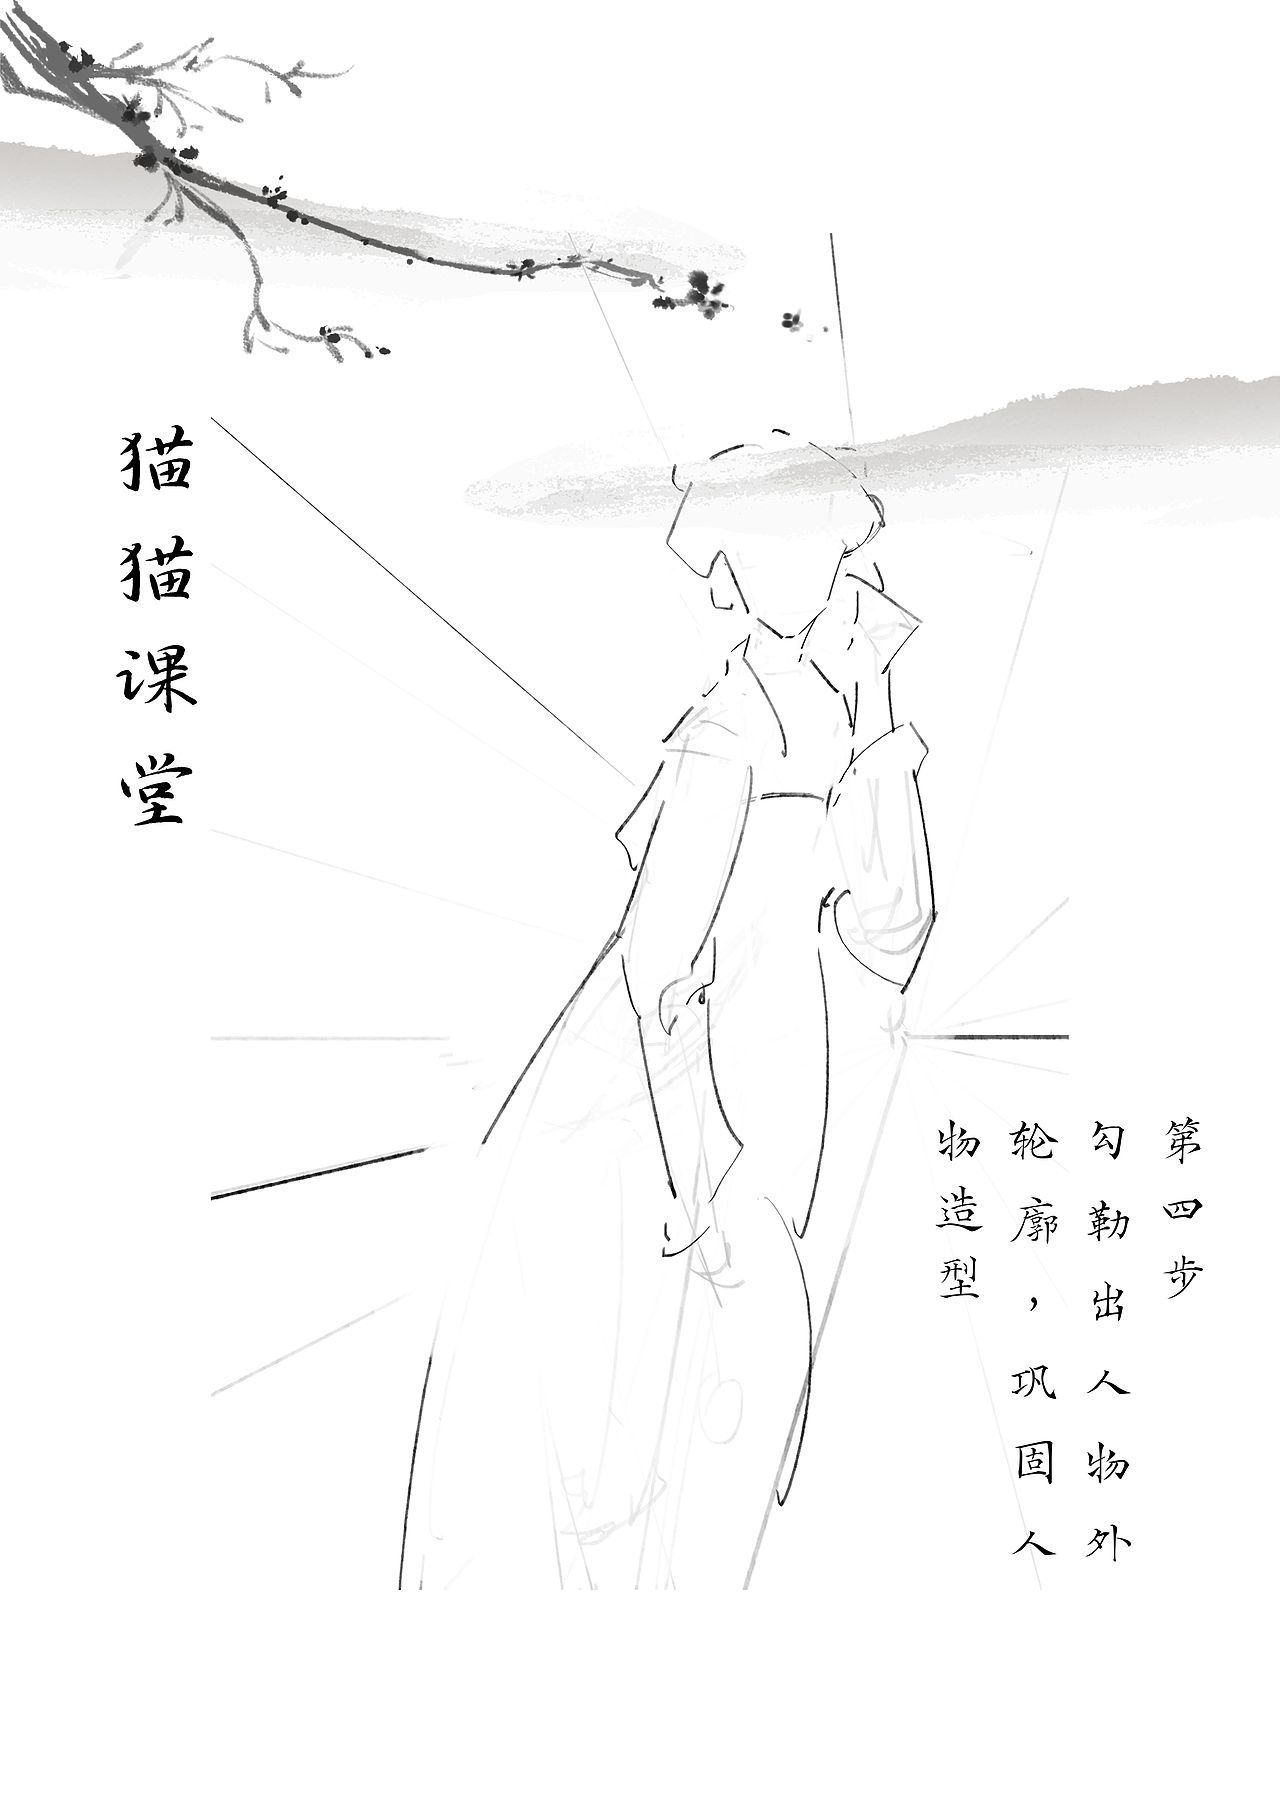 猫猫课堂
第四步
勾勒出人物外
轮廓，巩固人
物造型